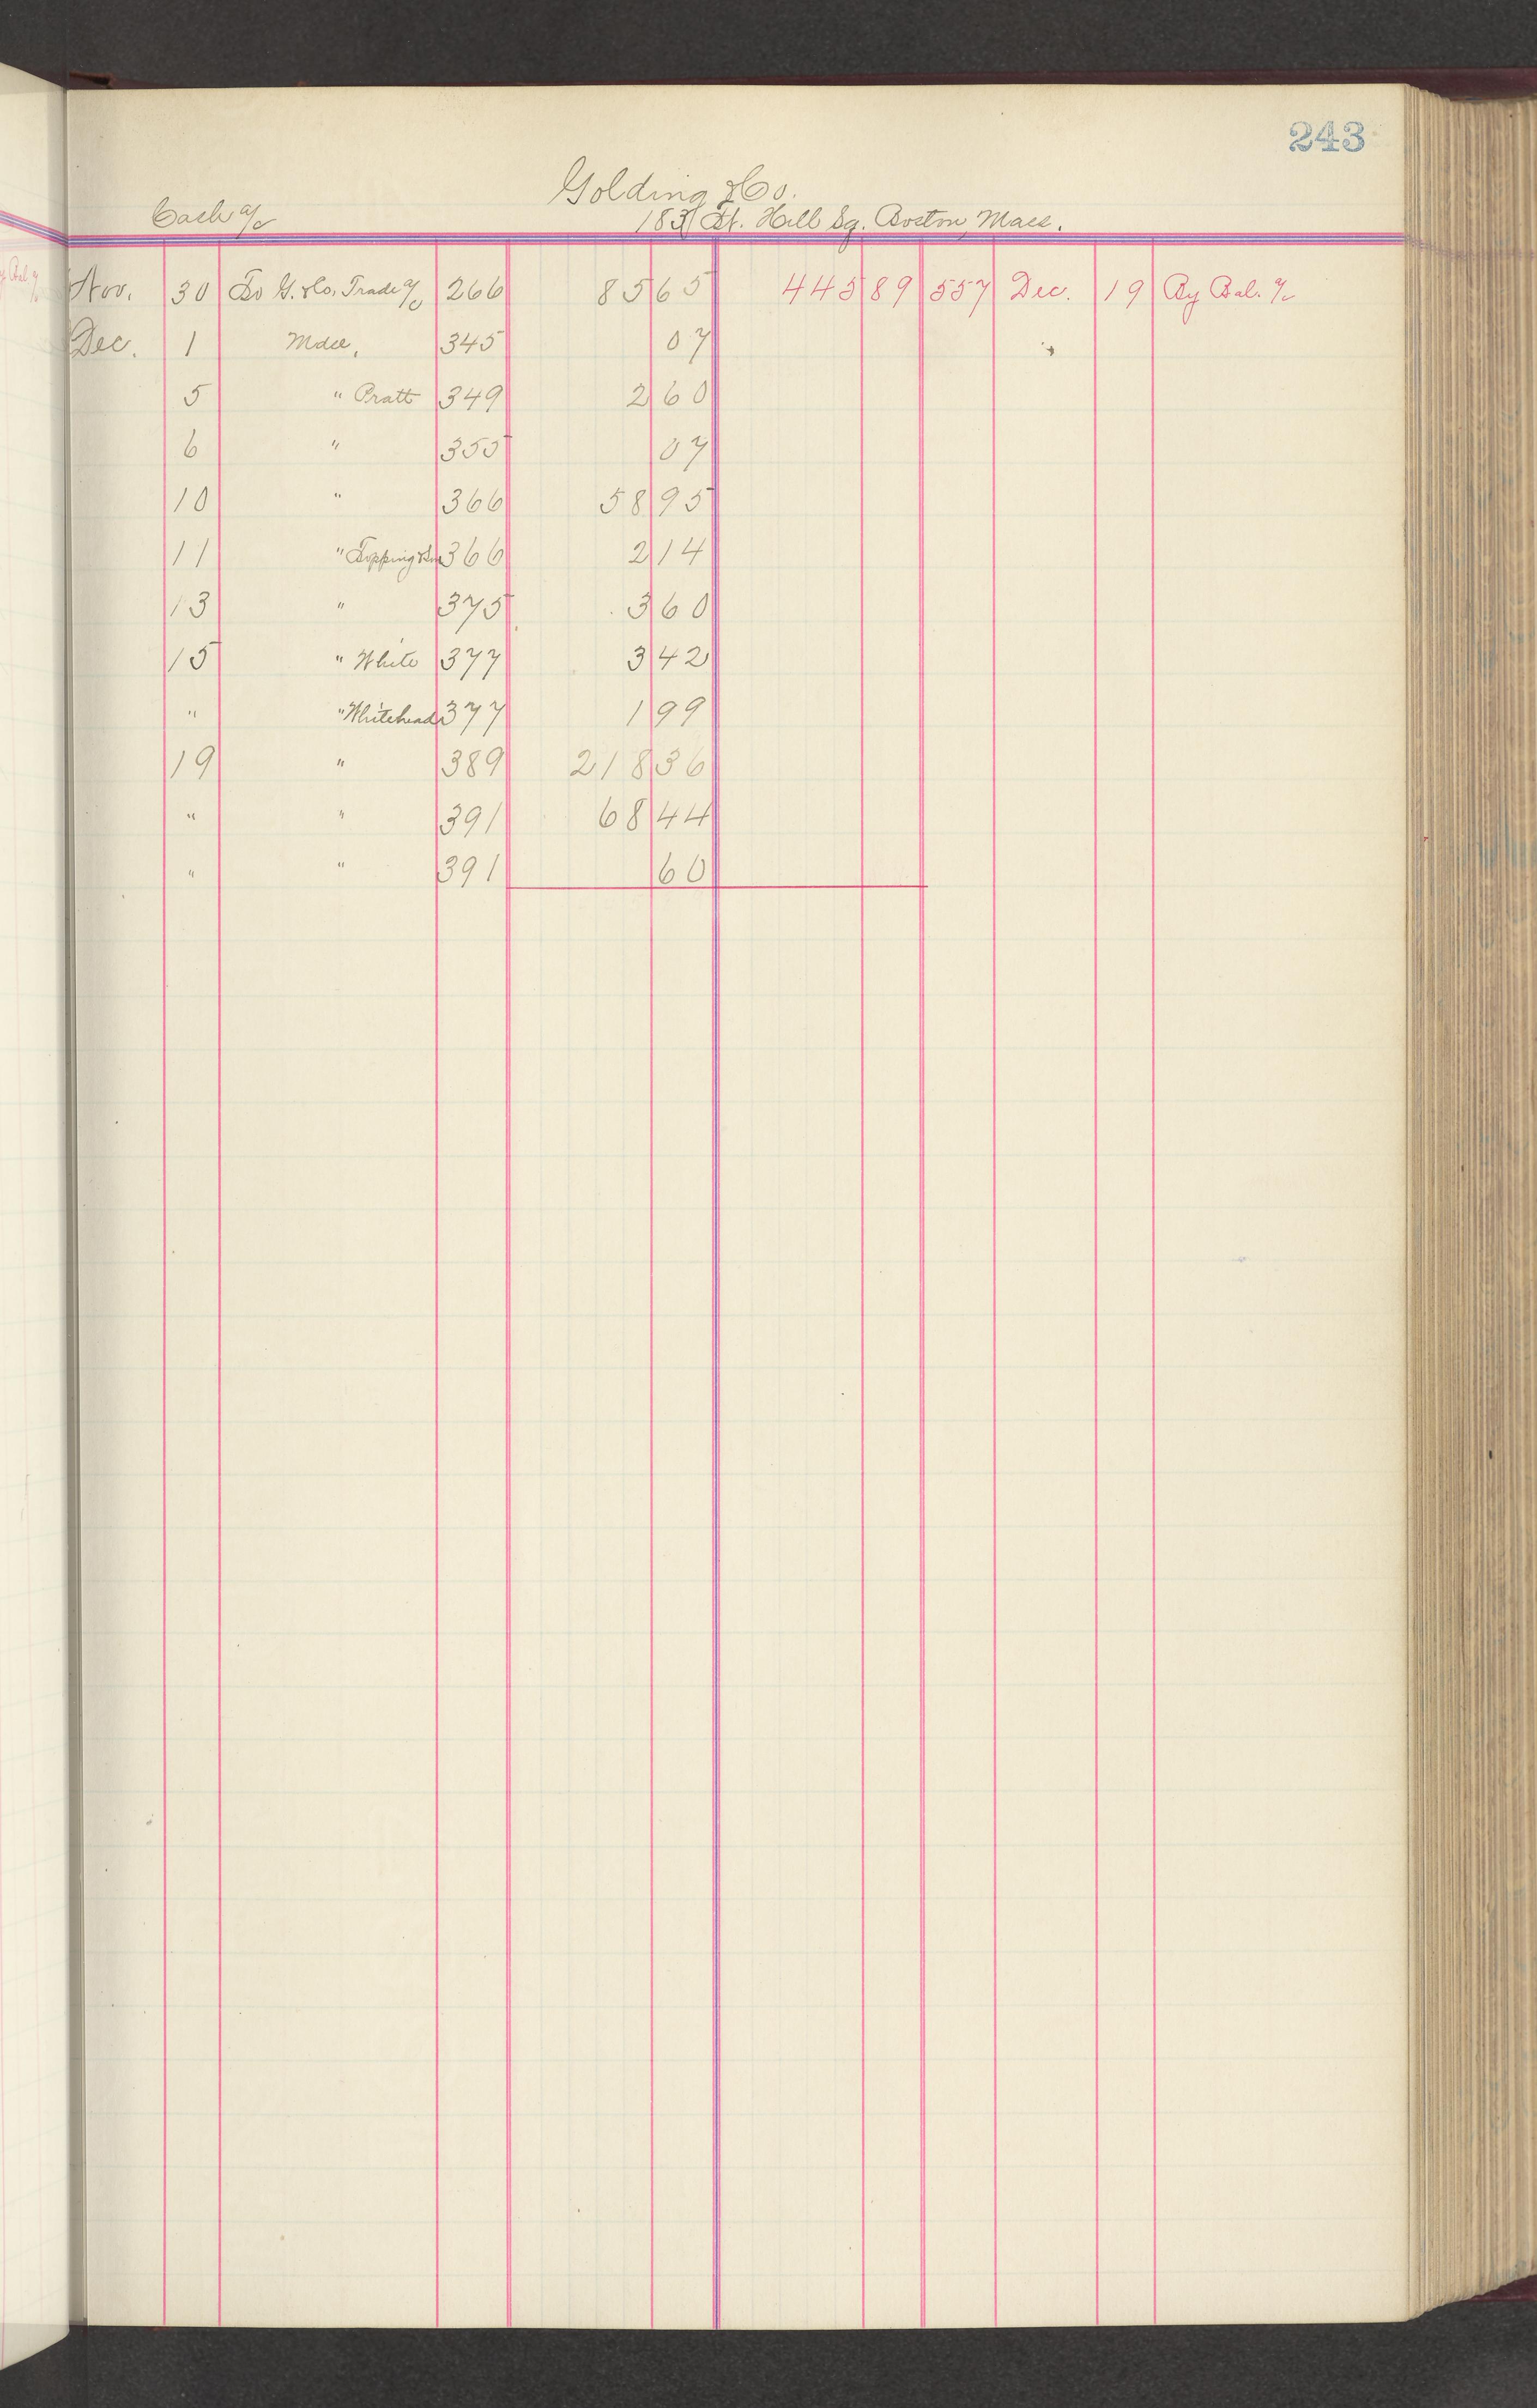 243
Golding & Co.
Cash a/c 183 Ft. Hill Sq. Boston, Mass.
Nov. 30 To G. & Co. Trade a/c 266 85 65 445 89 557 Dec. 19 By Bal. a/c
Dec. 1 Mdse. 345 07
5 " Pratt 349 2 60
6 " 355 07
10 " 366 58 95
11 " Topping & Son 366 2 14
13 " 375 3 60
15 " White 377 3 42
" " Whitehead 377 1 99
19 " 389 218 36
" " 391 68 44
" " 391 60